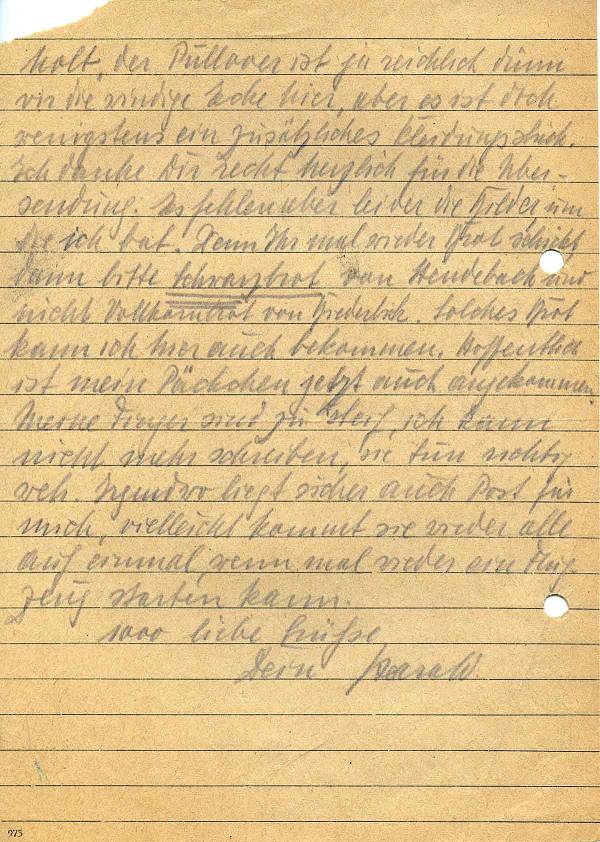 holt, der Pullover ist ja reichlich dünn
für die windige Ecke hier, aber es ist doch
wenigstens ein zusätzliches Kleidungsstück.
Ich danke Dir recht herzlich für die Über-
sendung. Es fehlen aber leider die Bilder, um
die ich bat. Wenn Ihr mal wieder Brot schickt
dann bitte Schwarzbrot von Hendebach und
nicht Vollkornbrot von Biederbick. Solches Brot
kann ich hier auch bekommen. Hoffentlich
ist mein Päckchen jetzt auch angekommen.
Meine Finger sind zu steif, ich kann
nicht mehr schreiben, sie tun richtig
weh. Irgendwo liegt sicher auch Post für
mich, vielleicht kommt sie wieder alle
auf einmal, wenn mal wieder ein Flug
zeug starten kann.
1000 liebe Grüße
Dein Harald.
975